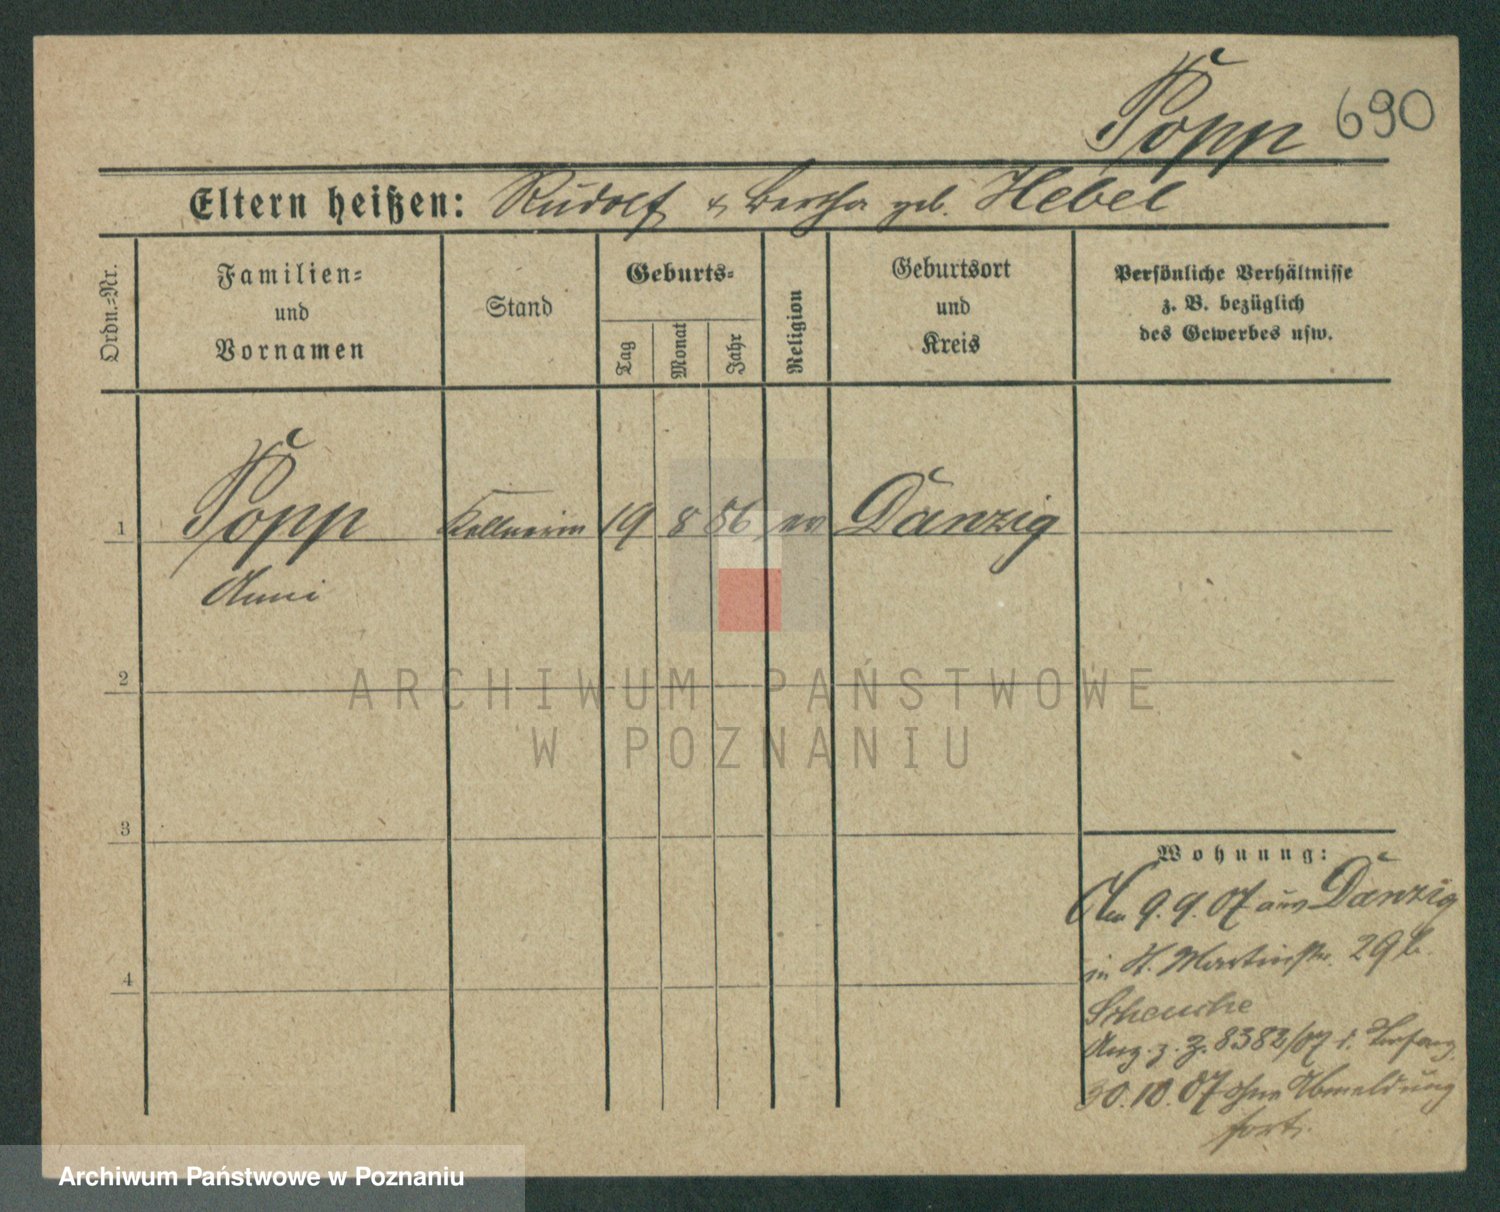 Popp 690
Eltern heißen: Rudolf & Bertha geb. Hebel
Ordn.-Nr.
Familien-
und
Vornamen
Stand
Geburts-
Tag
Monat
Jahr
Religion
Geburtsort
und
Kreis
Persönliche Verhältnisse
z. B. bezüglich
des Gewerbes usw.
1 Popp Kellnerin 19 8 86 ev Danzig
Anni
2
3
4
Wohnung:
9.9.07 aus Danzig
in St. Martinstr. 29 b.
Schenche
Anz. z. Z. 8382/07
30.10.07 ohne Abmeldung
fort.
ARCHIWUM PAŃSTWOWE
W POZNANIU
Archiwum Państwowe w Poznaniu